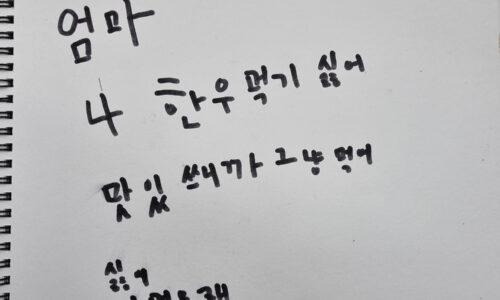 엄마
나 한우 먹기 싫어
맛있쓰니까 그냥 먹어
싫어